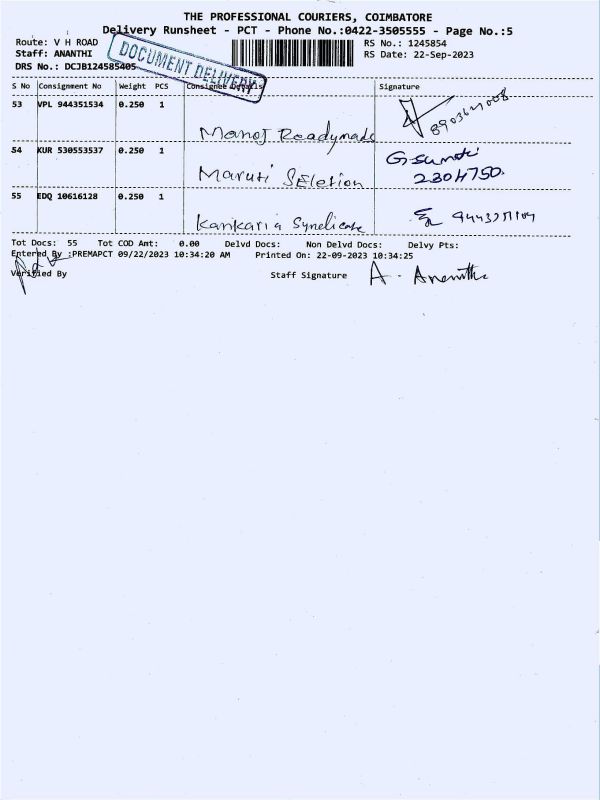 THE PROFESSIONAL COURIERS, COIMBATORE
Delivery Runsheet - PCT - Phone No.:0422-3505555 - Page No.:5
Route: V H ROAD
RS No.: 1245854
Staff: ANANTHI
RS Date: 22-Sep-2023
DRS No.: DCJB124585405
DOCUMENT DELIVERY
S No Consignment No Weight PCS Consignee Details Signature
53 VPL 944351534 0.250 1
Manoj Readymade
54 KUR 530553537 0.250 1
G. Sumathi
Maruti SEletion 2304750.
55 EDQ 10616128 0.250 1
Kankaria Syndicate
Tot Docs: 55 Tot COD Amt: 0.00 Delvd Docs: Non Delvd Docs: Delvy Pts:
Entered By :PREMAPCT 09/22/2023 10:34:20 AM Printed On: 22-09-2023 10:34:25
Verified By Staff Signature A. Ananthi